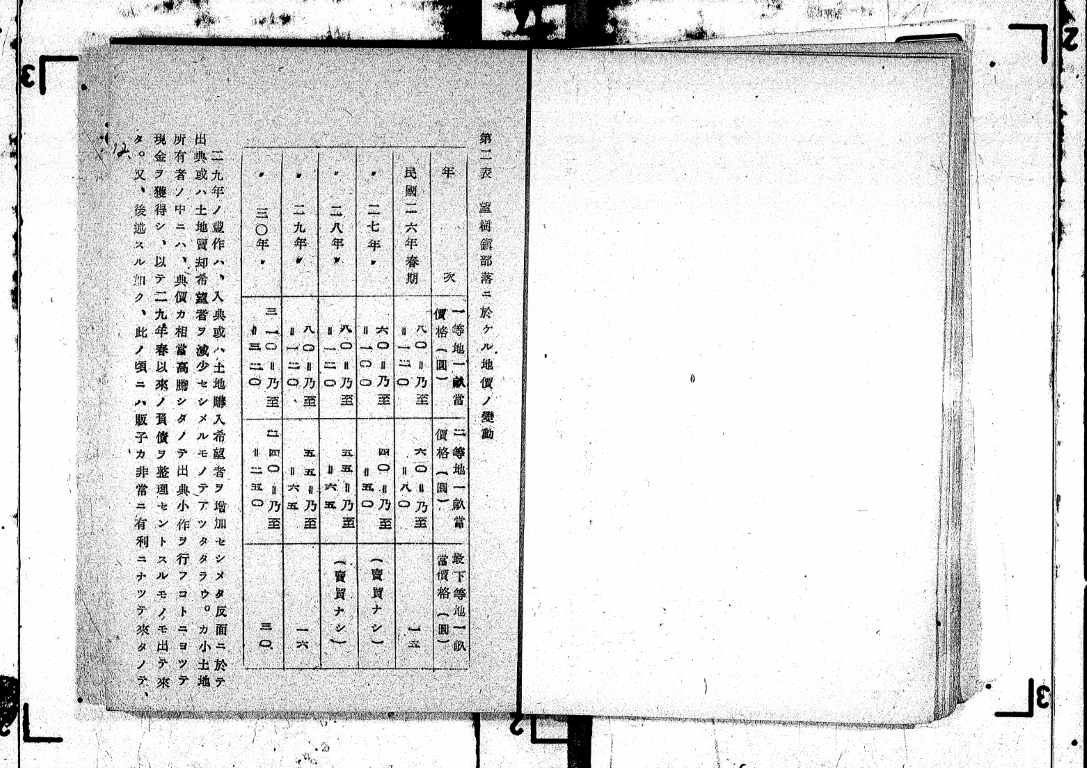 第二表 望樹鎭部落ニ於ケル地價ノ變動
年次
一等地一畝當
價格(圓)
二等地一畝當
價格(圓)
最下等地一畝
當價格(圓)
民國二六年春期
八〇〃乃至
〃一二〇
六〇〃乃至
〃八〇
一五
〃 二七年〃
六〇〃乃至
〃一〇〇
四〇〃乃至
〃五〇
(賣買ナシ)
〃 二八年〃
八〇〃乃至
〃一二〇
五五〃乃至
〃六五
(賣買ナシ)
〃 二九年〃
八〇〃乃至
〃一二〇、
五五〃乃至
〃六五
一六
〃 三〇年〃
三一〇〃乃至
〃三二〇
二四〇〃乃至
〃二五〇
三〇
二九年ノ豊作ハ、入典或ハ土地購入希望者ヲ增加セシメタ反面ニ於テ
出典或ハ土地賣却希望者ヲ減少セシメルモノテアツタタラウ。カ小土地
所有者ノ中ニハ、典價カ相當高騰シタノテ出典小作ヲ行フコトニヨツテ
現金ヲ獲得シ、以テ二九年春以來ノ負債ヲ整理セントスルモノモ出テ來
タ。又、後述スル如ク、此ノ頃ニハ販子カ非常ニ有利ニナツテ來タノテ、